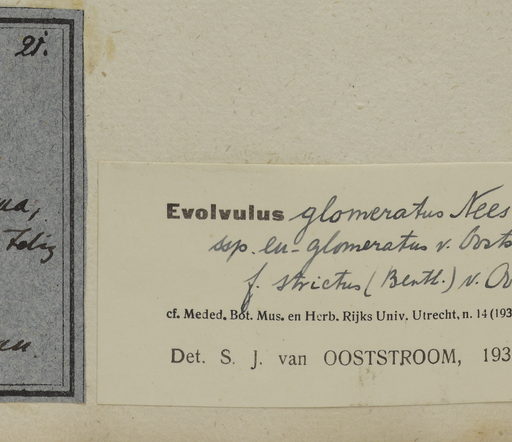 21.
Evolvulus glomeratus Nees
ssp. eu-glomeratus v. Oosts
f. strictus (Benth.) v. Oo
cf. Meded. Bot. Mus. en Herb. Rijks Univ. Utrecht, n. 14 (193
Det. S. J. van OOSTSTROOM, 193